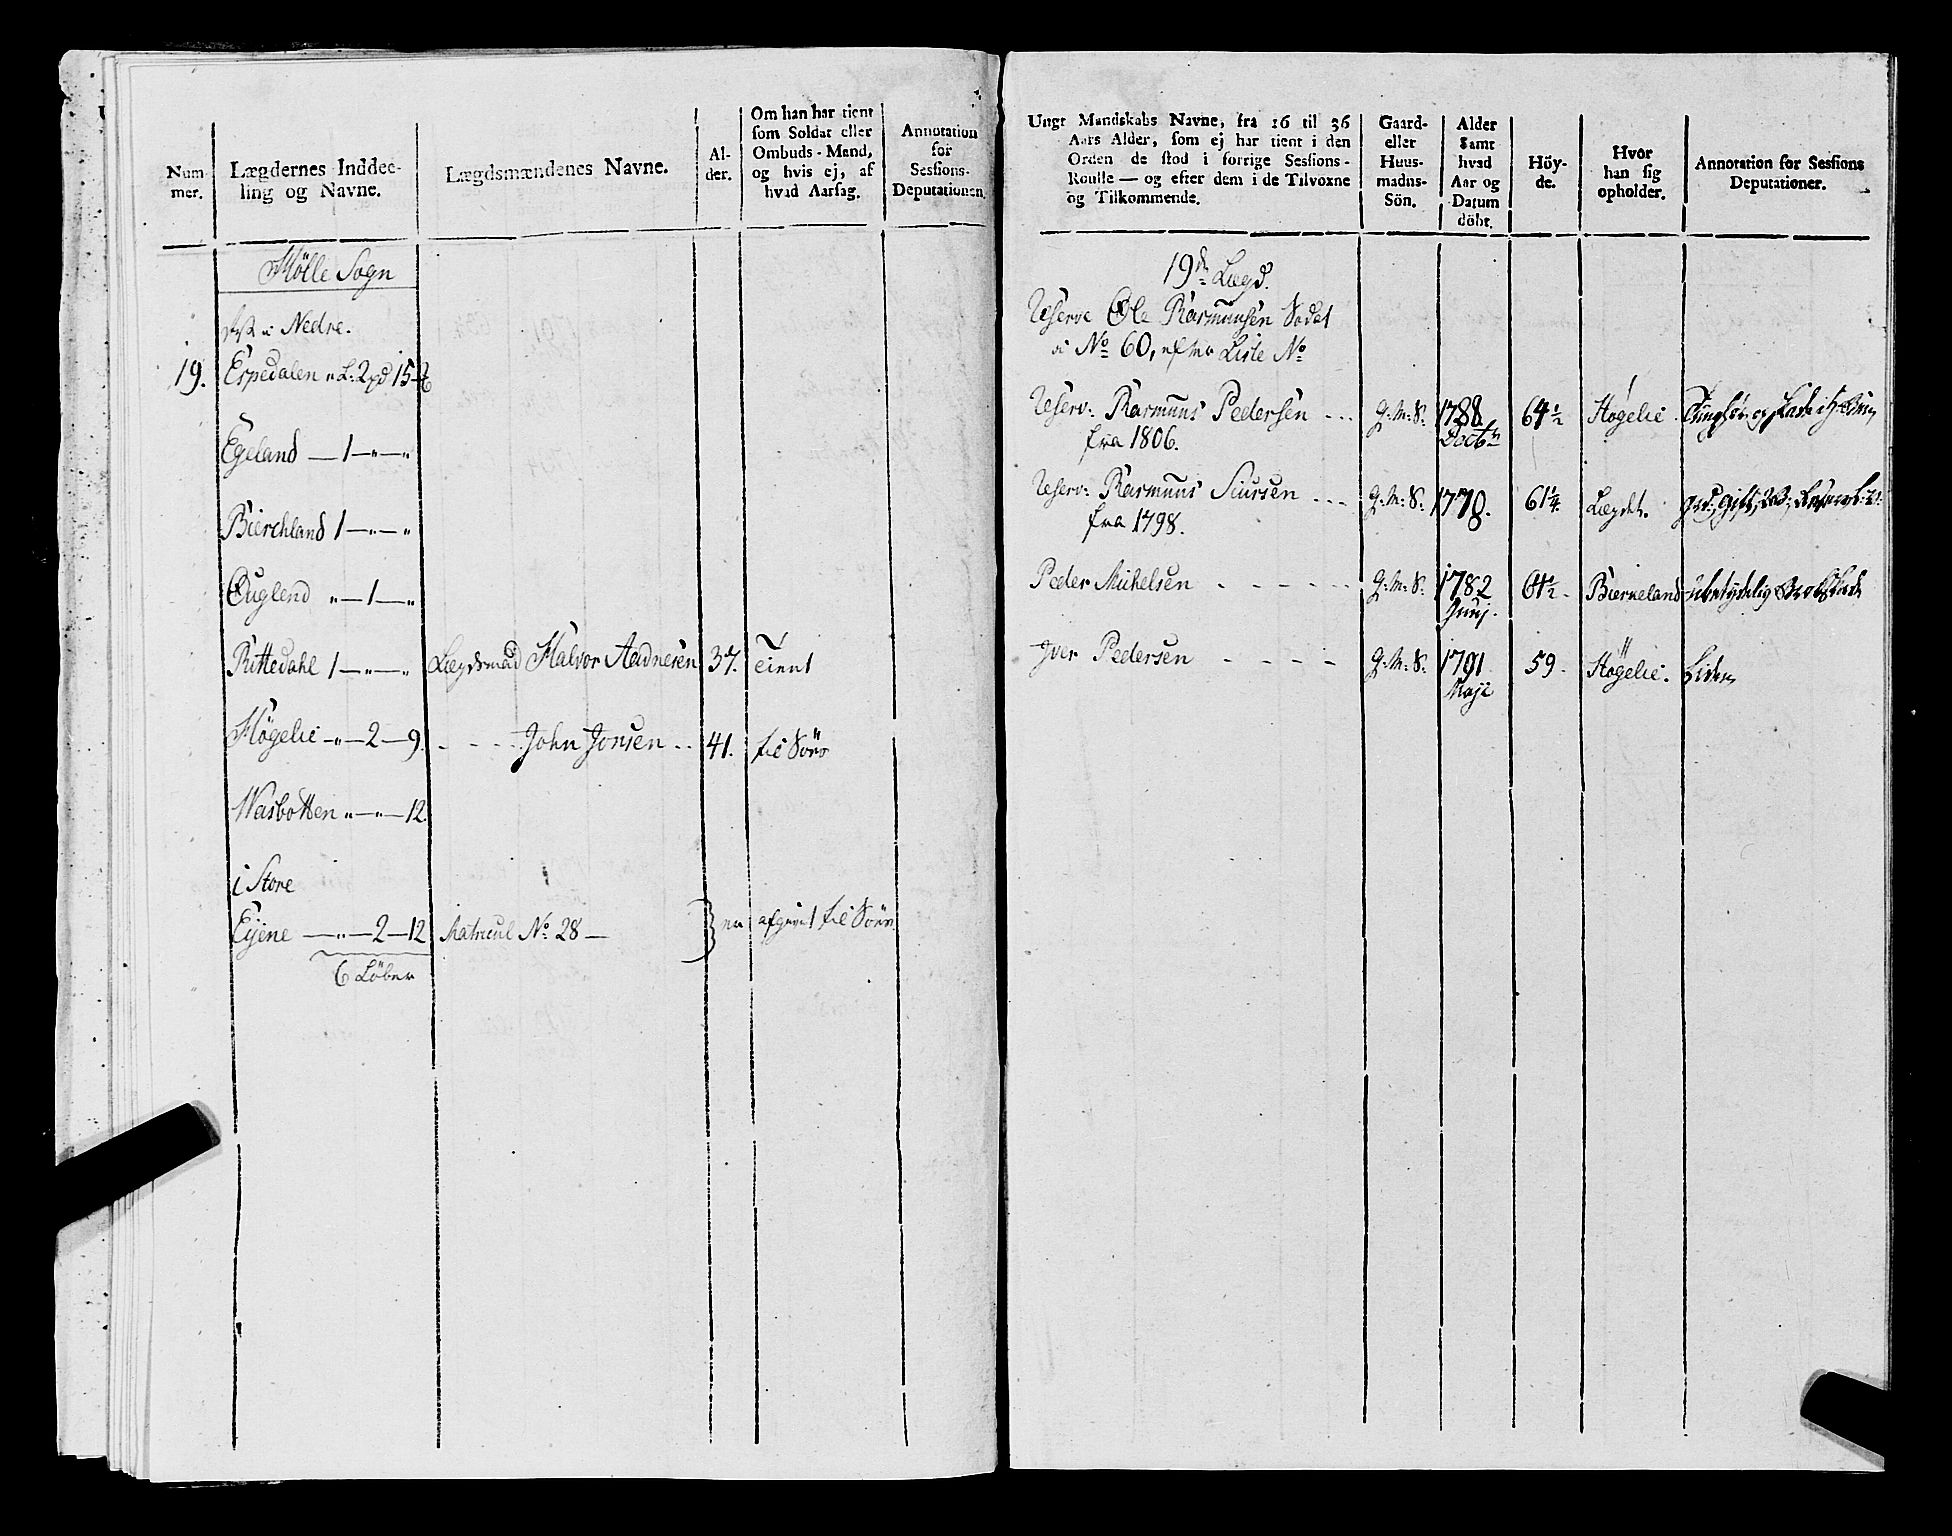 Num-
mer.
Lægdernes Inddee-
ling og Navne.
Lægdsmændenes Navne.
Al-
der.
Om han har tient
som Soldat eller
Ombuds-Mand,
og hvis ej, af
hvad Aarsag.
Annotation
for
Sessions-
Deputationen.
Hölle Sogn
Nedre.
19. Espedalen 2 pd 15
Egeland — 1 — " — "
Bierchland 1 — " — "
Øuglend " — 1 — "
Rittedahl 1 — " — " Lægdsmand Halvor Aadnesen 37. tient
Høgelie — " — 2 — 9. - - - John Jonsen - - 41. til Søes
Wasbotten " — " — 12.
i Store
Eijene — " — 2 — 12 Matricul No 28 — er afgivet til Søes
6 Löber
Ungt Mandskabs Navne, fra 16 til 36
Aars Alder, som ej har tient i den
Orden de stod i forrige Sessions-
Roulle — og efter dem i de Tilvoxne
og Tilkommende.
Gaard-
eller
Huus-
mands-
Sön.
Alder
samt
hvad
Aar og
Datum
döbt.
Höy-
de.
Hvor
han sig
opholder.
Annotation for Sessions
Deputationer.
19de Lægd.
Reserve Ole Rasmussen Sodat
a No 60, efter Liste No
Reserv: Rasmuus Pedersen - - - G:M:S: 1788 64½ Høgelie
fra 1806.
Reserv: Rasmuus Siursen - - - G:M:S: 1778. 61¼ Lægdet.
fra 1798.
Peder Michelsen - - - - - - G:M:S: 1782 64½ - Bierkeland ubetydelig
Junj.
Iver Pedersen - - - - - G:M:S: 1791 59 - Høgelie. Liden
Maji